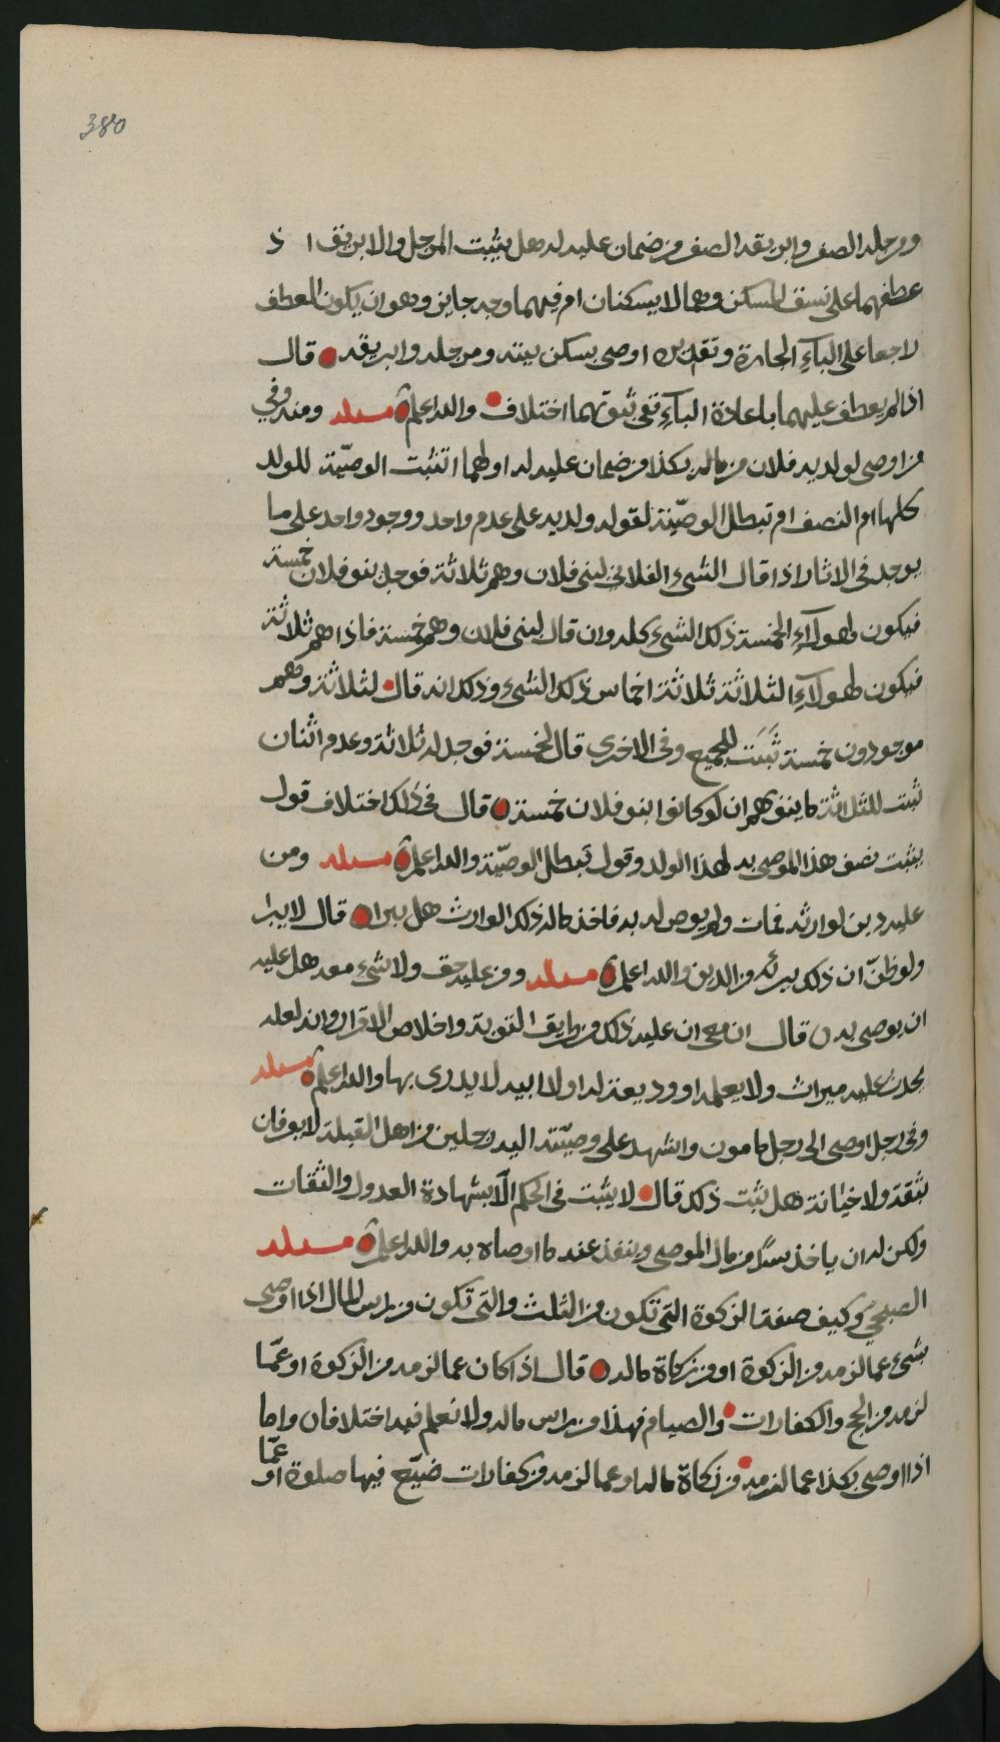 380
ومرجله الصفر وابريقه الصفر من ضمان عليه له هل يثبت المرجل والابريق اذ
عطفهما على نسق المسكن وهما لا يسكنان ام فيهما وجه جايز وهو ان يكون العطف
راجعا على الباء الجارة وتقديره اوصى بسكن بيته ومرجله وابريقه قال
اذا لم يعطف عليهما باعادة الباء ففي ثبوتهما اختلاف والله اعلم مسئلة ومنه وفي
من اوصى لولديه فلان من ماله بكذا من ضمان عليه له او لهما اتثبت الوصيّة للولد
كلها ام النصف ام تبطل الوصيّة لقوله ولديه على عدم واحد ووجود واحد على ما
يوجد في الاثار اذا قال الشيء الفلاني لبني فلان وهم ثلاثة فوجد بنو فلان خمسة
فيكون لهولآء الخمسة ذلك الشيء كله وان قال لبني فلان وهم خمسة فاذا هم ثلاثة
فيكون لهولآء الثلاثة ثلاثة اخماس ذلك الشيء وذلك انه قال لثلاثة وهم
موجودون خمسة ثبتت للجميع وفي الاخرى قال لخمسة فوجد له ثلاثة وعدم اثنان
ثبت للثلاثة ما ينوبهم ان لو كانوا بنو فلان خمسة قال في ذلك اختلاف قول
يثبت نصف هذا الموصى به لهذا الولد وقول تبطل الوصيّة والله اعلم مسئلة ومن
عليه دين لوارثه فمات ولم يوص له به فاخذ ماله ذلك الوارث هل يبرا قال لا يبرا
ولو ظنّ ان ذلك يبرئه من الدين والله اعلم مسئلة ومن عليه حق ولا شيء معه هل عليه
ان يوصي به قال ان معي ان عليه ذلك من طريق التوبة واخلاص الاقرار وانه لعله
يحدث عليه ميراث ولا يعلمه او وديعة له او لابيه لا يدرى بها والله اعلم مسئلة
وفي رجل اوصى الى رجل مامون واشهد على وصيّته اليه رجلين من اهل القبلة لا يعرفان
بثقة ولا خيانة هل يثبت ذلك قال لا يثبت في الحكم الّا بشهادة العدول والثقات
ولكن له ان ياخذ سرًّا من مال الموصي وينفذ عنه ما اوصاه به والله اعلم مسئلة
الصبحي وكيف صفة الزكوة التي تكون من الثلث والتي تكون من راس المال اذا اوصى
بشيء عما لزمه من الزكوة او من زكاة ماله قال اذا كان عما لزمه من الزكوة او عمّا
لزمه من الحج والكفارات والصيام فهذا من راس ماله ولا نعلم فيه اختلافا واما
اذا اوصى بكذا عما لزمه من زكاة ماله او عما لزمه من كفارات ضيّع فيها صلوة او عمّا